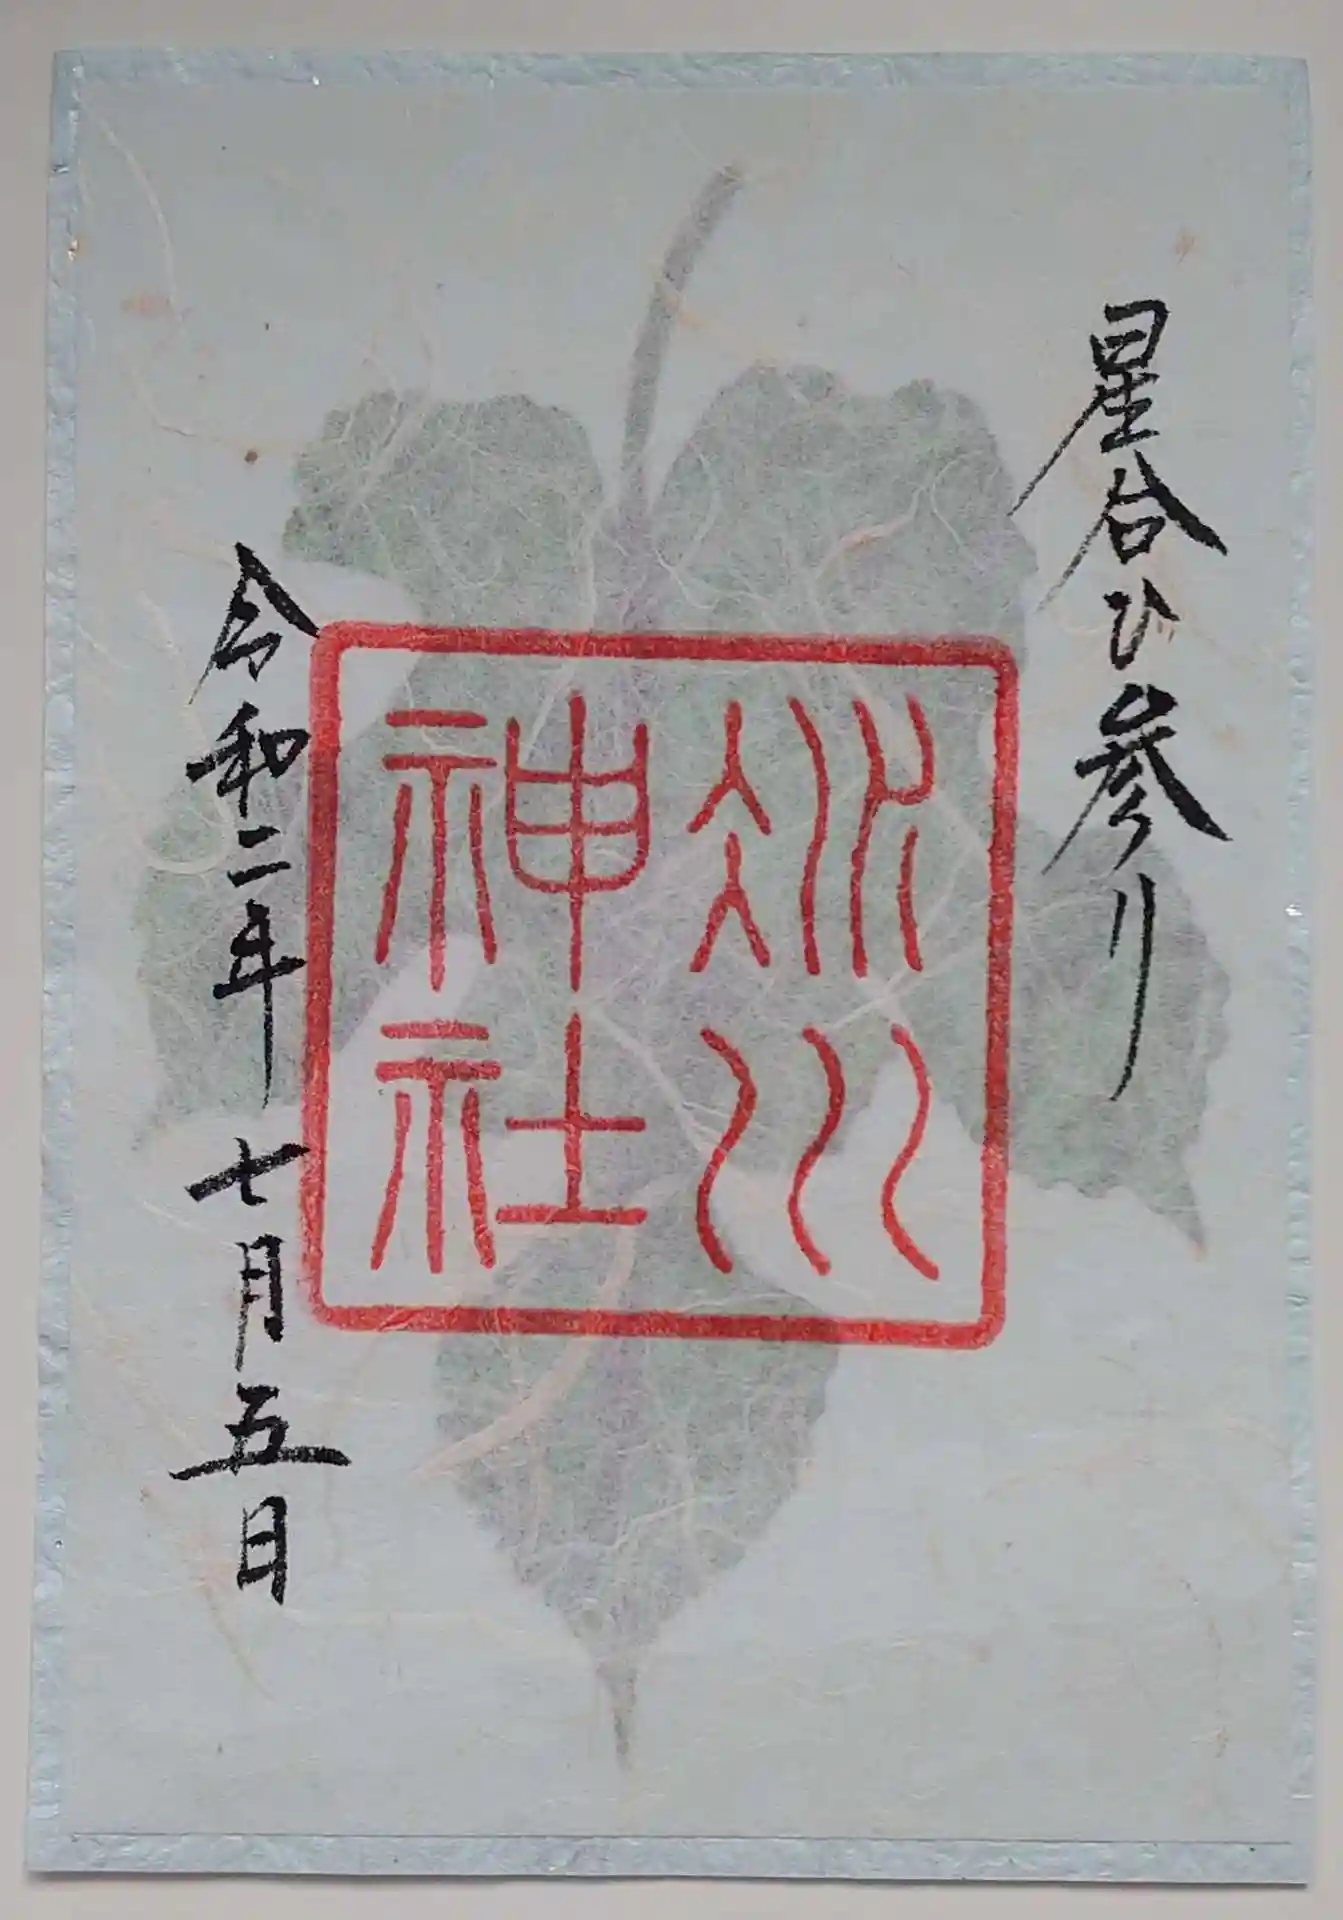 星合ひ参り
冰川
神社
令和二年七月五日